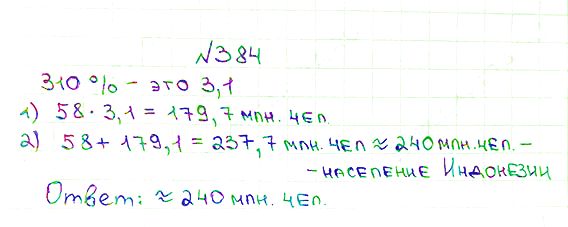 №384
310 % - это 3,1
1) 58 · 3,1 = 179,7 млн. чел.
2) 58 + 179,1 = 237,7 млн. чел ≈ 240 млн. чел. -
- население Индонезии
Ответ: ≈ 240 млн. чел.